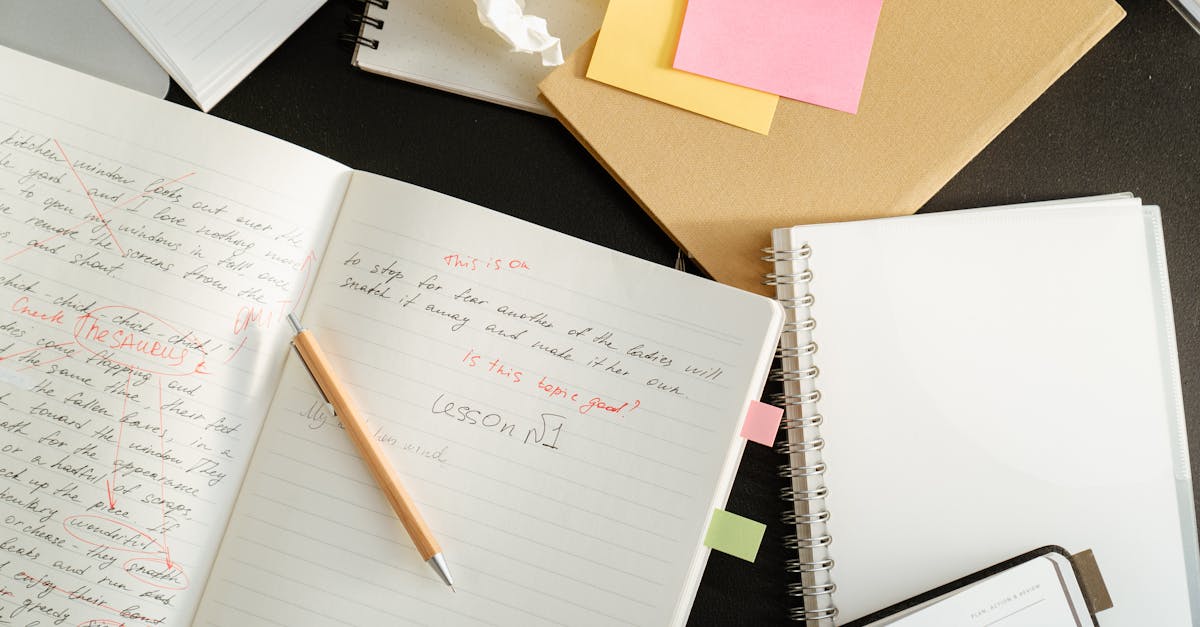 kitchen window looks out over the
yard. and I love nothing more
to open my windows in fall, once
remove the screens from the
and shout.
chick-chick-chick-chick!
OMIT
Check Thesaurus
come flapping and
the same time, their feet
the fallen leaves, in a
toward the window. They
for the appearance
or a handful of scraps.
up the piece. If
wonderful
or cheese - they snatch
and run
enjoy their
greedy
This is on
to stop for fear another of the ladies will
snatch it away and make it her own.
Is this topic good?
Lesson №1
My
PLAN, ACTION & REVIEW